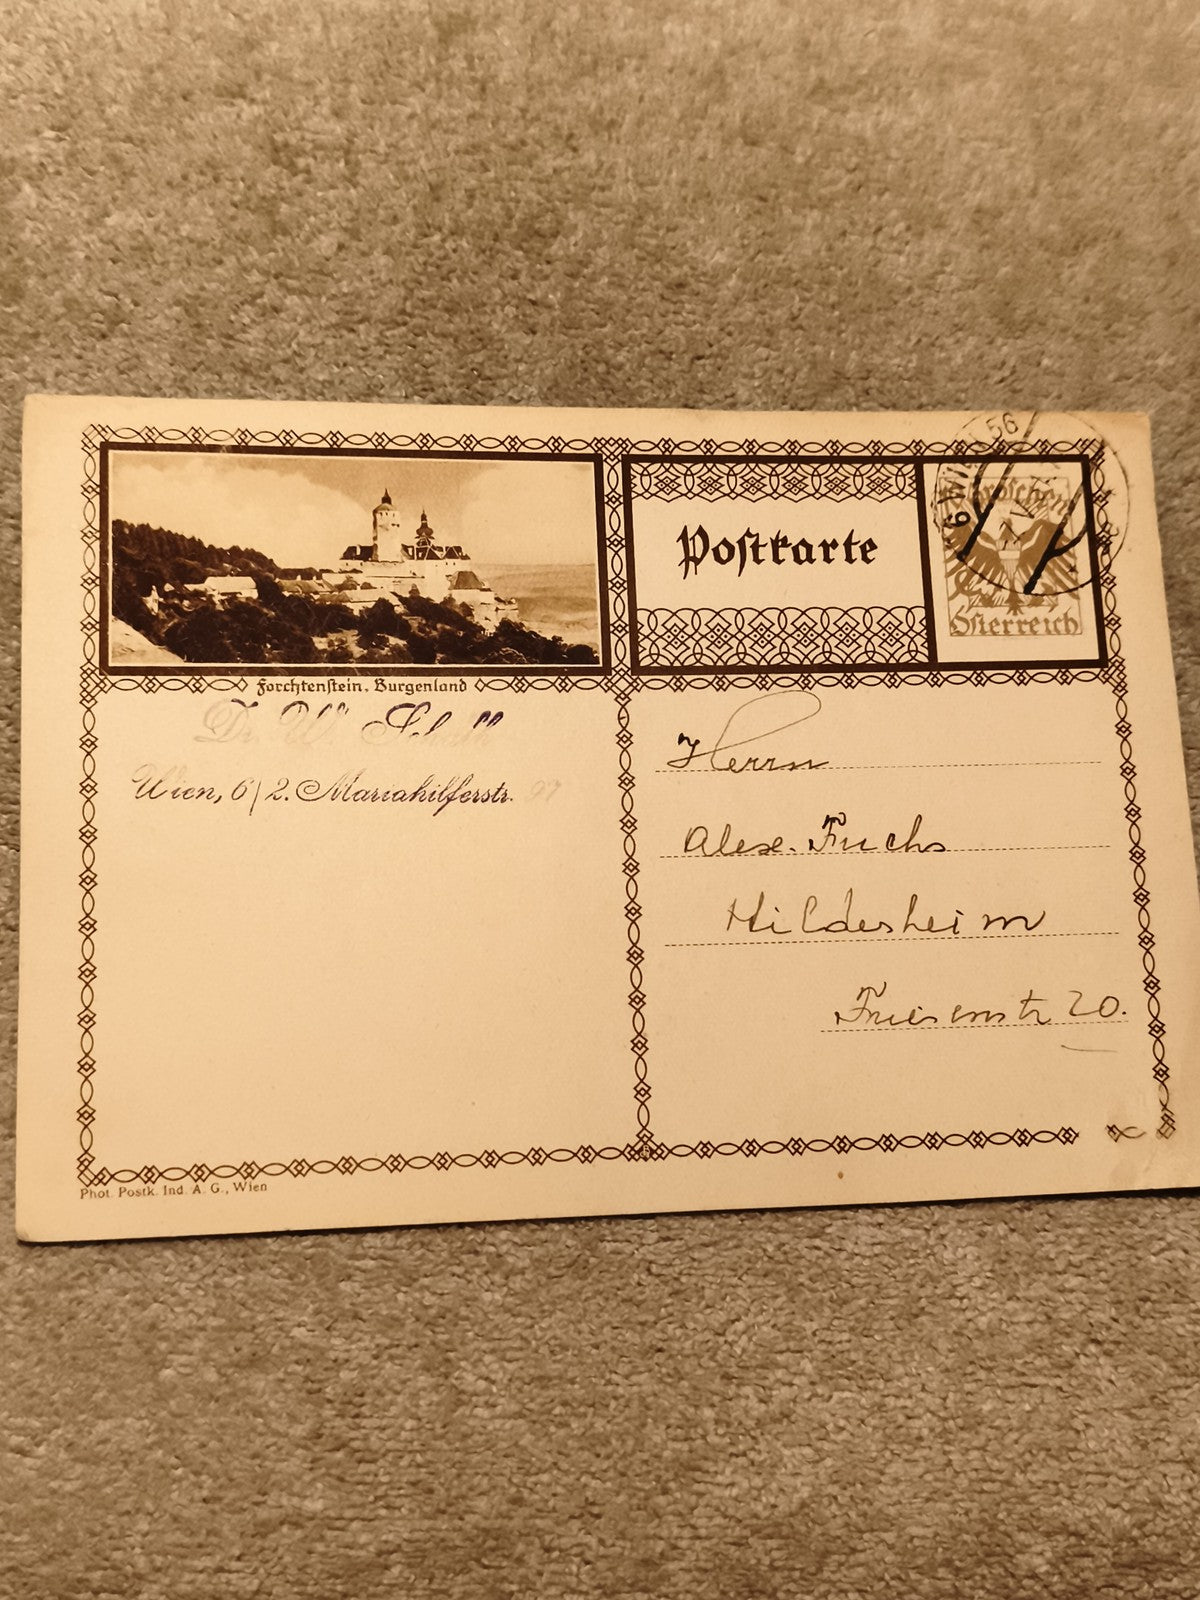 Forchtenstein, Burgenland
Postkarte
Groschen
Österreich
Wien 56
Dr. W. Schall
Wien, 6/2. Mariahilferstr. 97
Herrn
Alex. Fuchs
Hildesheim
Friesenstr 20.
Phot. Postk. Ind. A. G., Wien